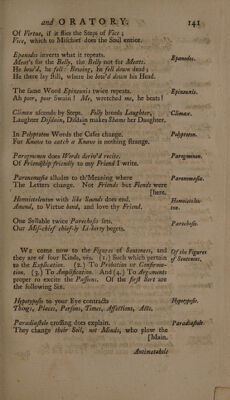 and ORATORY. 141
Of Virtue, if it flies the Steps of Vice ;
Vice, which to Mischief does the Soul entice.
Epanodos inverts what it repeats.
Meat's for the Belly, the Belly not for Meats.
He bow'd, he fell: Bowing, he fell down dead;
He there lay still, where he bow'd down his Head.
Epanodos.
The same Word Epizeuxis twice repeats.
Ah poor, poor Swain! Me, wretched me, he beats!
Epizeuxis.
Climax ascends by Steps. Folly breeds Laughter,
Laughter Disdain, Disdain makes Shame her Daughter.
Climax.
In Polyptoton Words the Cases change.
For Knave to catch a Knave is nothing strange.
Polyptoton.
Paregmenon does Words deriv'd recite.
Of Friendship friendly to my Friend I write.
Paregmenon.
Paranomasia alludes to th'Meaning where
The Letters change. Not Friends but Fiends were
[here.
Paranomasia.
Homoioteleuton with like Sounds does end.
Amend, to Virtue bend, and love thy Friend.
Homoioteleu-
ton.
One Syllable twice Parechesis sets.
Our Mis-chief chief-ly Li-berty begets.
Parechesis.
We come now to the Figures of Sentences, and
they are of four Kinds, viz. (1.) Such which pertain
to the Explication. (2.) To Probation or Confirma-
tion. (3.) To Amplification. And (4.) To Arguments
proper to excite the Passions. Of the first Sort are
the following Six.
Of the Figures
of Sentences.
Hypotyposis to your Eye contracts
Things, Places, Persons, Times, Affections, Acts.
Hypotyposis.
Paradiastole crossing does explain.
They change their Soil, not Minds, who plow the
[Main.
Paradiastole.
Antimetabole